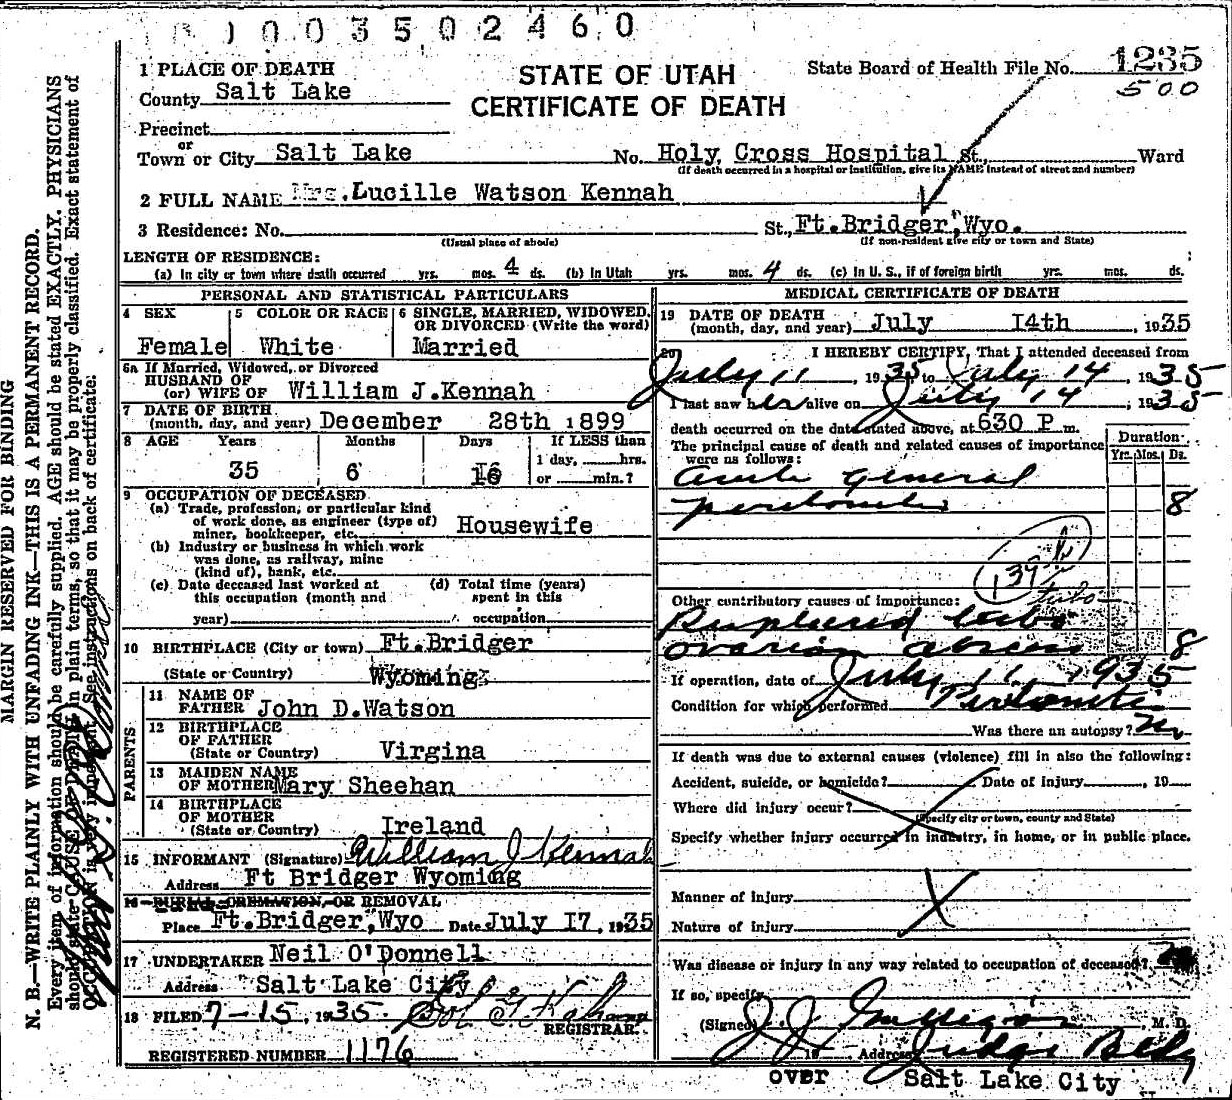 0003502460
STATE OF UTAH
CERTIFICATE OF DEATH
State Board of Health File No. 1235
500
1 PLACE OF DEATH
County Salt Lake
Precinct
or
Town or City Salt Lake No. Holy Cross Hospital St., Ward
(If death occurred in a hospital or institution, give its NAME instead of street and number)
2 FULL NAME Mrs. Lucille Watson Kennah
3 Residence: No. St., Ft. Bridger, Wyo.
(Usual place of abode) (If non-resident give city or town and State)
LENGTH OF RESIDENCE:
(a) In city or town where death occurred yrs. mos. 4 ds. (b) In Utah yrs. mos. 4 ds. (c) In U. S., if of foreign birth yrs. mos. ds.
PERSONAL AND STATISTICAL PARTICULARS
4 SEX Female
5 COLOR OR RACE White
6 SINGLE, MARRIED, WIDOWED, OR DIVORCED (Write the word) Married
6a If Married, Widowed, or Divorced
HUSBAND OF
(or) WIFE OF William J. Kennah
7 DATE OF BIRTH
(month, day, and year) December 28th 1899
8 AGE Years Months Days If LESS than
35 6 16 1 day, hrs.
or min.?
9 OCCUPATION OF DECEASED
(a) Trade, profession, or particular kind
of work done, as engineer (type of)
miner, bookkeeper, etc. Housewife
(b) Industry or business in which work
was done, as railway, mine
(kind of), bank, etc.
(c) Date deceased last worked at
this occupation (month and
year)
(d) Total time (years)
spent in this
occupation
10 BIRTHPLACE (City or town) Ft. Bridger
(State or Country) Wyoming
PARENTS
11 NAME OF
FATHER John D. Watson
12 BIRTHPLACE
OF FATHER
(State or Country) Virgina
13 MAIDEN NAME
OF MOTHER Mary Sheehan
14 BIRTHPLACE
OF MOTHER
(State or Country) Ireland
15 INFORMANT (Signature) William J Kennah
Address Ft Bridger Wyoming
16 BURIAL, CREMATION, OR REMOVAL
Place Ft. Bridger, Wyo Date July 17, 1935
17 UNDERTAKER Neil O'Donnell
Address Salt Lake City
18 FILED 7-15, 1935.
REGISTRAR.
REGISTERED NUMBER 1176
MEDICAL CERTIFICATE OF DEATH
19 DATE OF DEATH
(month, day, and year) July 14th, 1935
20 I HEREBY CERTIFY, That I attended deceased from
July 11, 1935 to July 14, 1935
I last saw her alive on July 14, 1935
death occurred on the date stated above, at 630 P m.
The principal cause of death and related causes of importance
were as follows:
Duration
Yrs. Mos. Ds.
acute general
peritonitis 8
139
tubo
Other contributory causes of importance:
Ruptured tubo
ovarian abscess 8
If operation, date of July 11, 1935
Condition for which performed Peritonitis
Was there an autopsy? No
If death was due to external causes (violence) fill in also the following:
Accident, suicide, or homicide? Date of injury , 19
Where did injury occur?
(Specify city or town, county and State)
Specify whether injury occurred in industry, in home, or in public place.
Manner of injury
Nature of injury
Was disease or injury in any way related to occupation of deceased?
If so, specify
(Signed) M. D.
19 Address Judge Bldg
over Salt Lake City
MARGIN RESERVED FOR BINDING
N. B.—WRITE PLAINLY WITH UNFADING INK—THIS IS A PERMANENT RECORD.
Every item of information should be carefully supplied. AGE should be stated EXACTLY. PHYSICIANS
should state CAUSE OF DEATH in plain terms, so that it may be properly classified. Exact statement of
OCCUPATION is very important. See instructions on back of certificate.